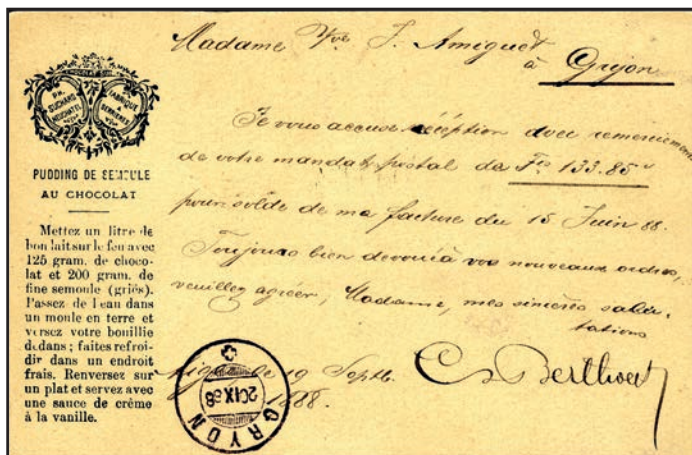 PH. SUCHARD NEUCHATEL
FABRIQUE A SERRIÈRES
PUDDING DE SEMOULE
AU CHOCOLAT
Mettez un litre de
bon lait sur le feu avec
125 gram. de choco-
lat et 200 gram. de
fine semoule (griés).
Passez de l'eau dans
un moule en terre et
versez votre bouillie
dedans; faites refroi-
dir dans un endroit
frais. Renversez sur
un plat et servez avec
une sauce de crême
à la vanille.
Madame Vve J. Amiguet
à Gryon
Je vous accuse réception avec remerciements
de votre mandat postal de Frs 133.85
pour solde de ma facture du 15 Juin 88.
Toujours bien dévoué à vos nouveaux ordres,
veuillez agréer, Madame, mes sincères salu-
tations
19 Septb.
1888.
Berthoet
GRYON
20 IX 88